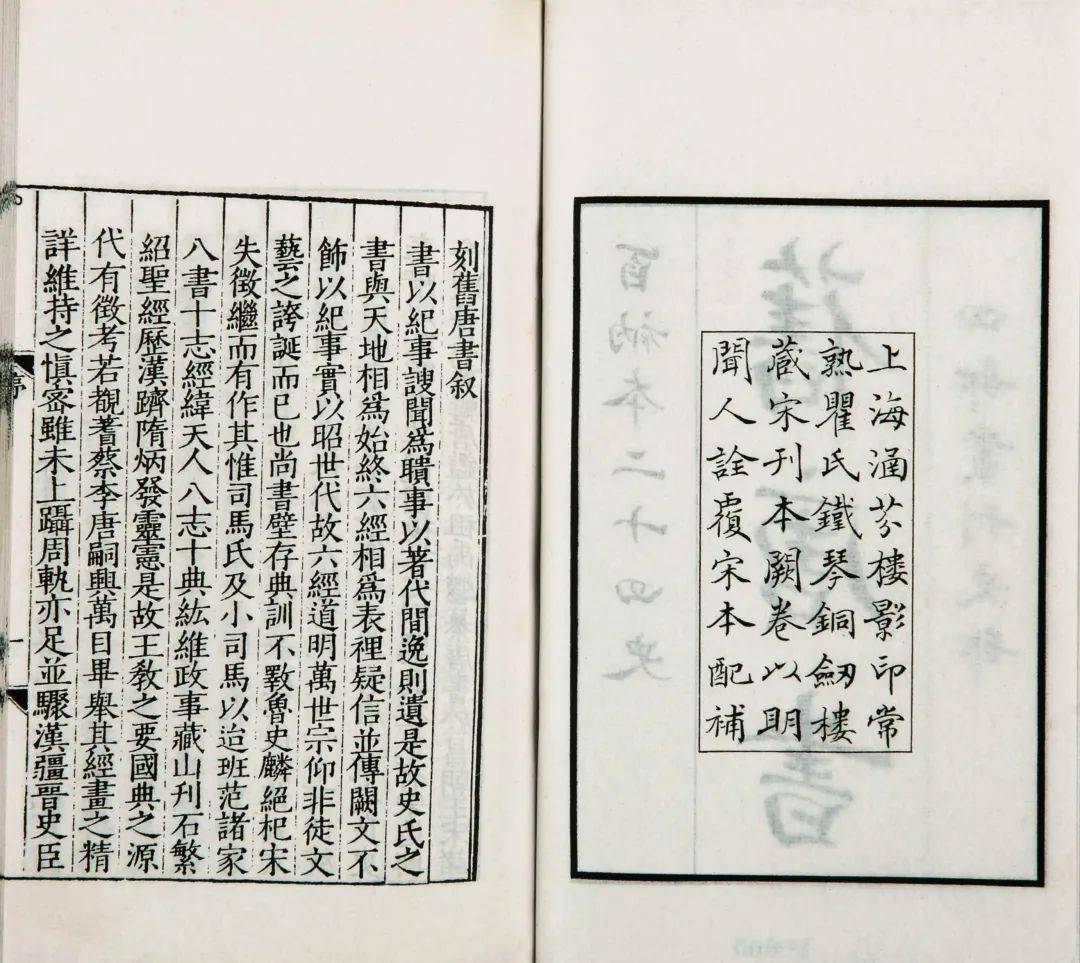 上海涵芬樓影印常
熟瞿氏鐵琴銅劒樓
藏宋刊本闕卷以明
聞人詮覆宋本配補
刻舊唐書叙
書以紀事謏聞爲聵事以著代間逸則遺是故史氏之
書與天地相爲始終六經相爲表裡疑信並傳闕文不
飾以紀事實以昭世代故六經道明萬世宗仰非徒文
藝之誇誕而已也尚書壁存典訓不斁魯史麟絕杞宋
失徵繼而有作其惟司馬氏及小司馬以迨班范諸家
八書十志經緯天人八志十典紘維政事藏山刋石繁
紹聖經歷漢躋隋炳發靈憲是故王教之要國典之源
代有徵考若覩蓍蔡李唐嗣興萬目畢舉其經畫之精
詳維持之慎宻雖未上躡周軌亦足並驟漢疆晉史臣